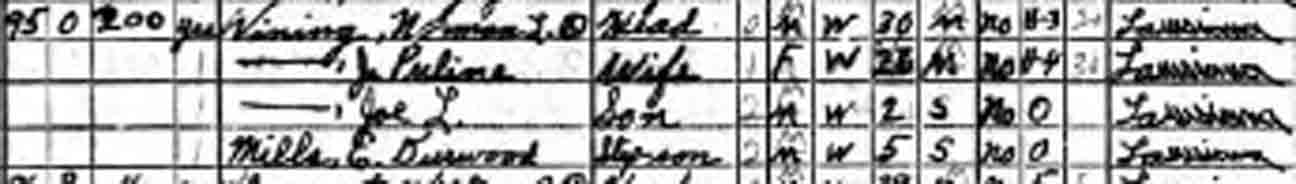 95 0 200 yes Vining, Norman L. Head 0 M W 30 M no H-3 30 Louisiana
——, J. Puline Wife 1 F W 26 M no H-4 Louisiana
——, Joe L. Son 2 M W 2 S No 0 Louisiana
Mills, E. Durwood Stepson 2 M W 5 S no 0 Louisiana